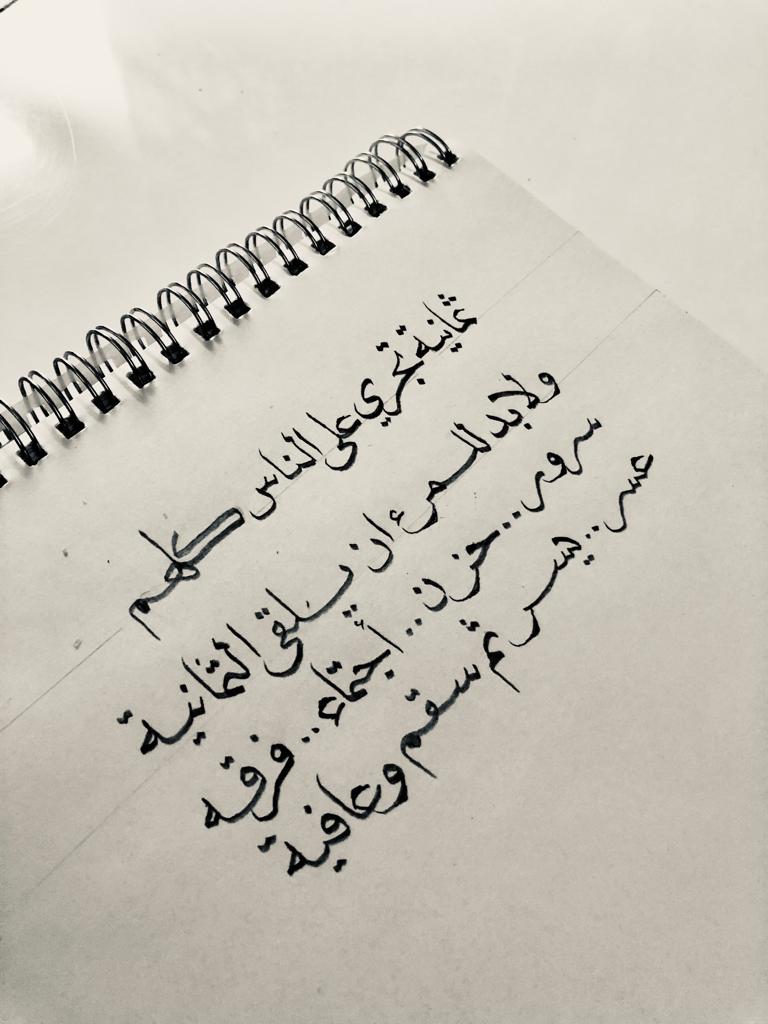 ثمانية تجري على الناس كلهم
ولابد للمرء ان يلقى الثمانية
سرور.. حزن.. أجتماع.. فرقة
عسر.. يسر ثم سقم وعافية